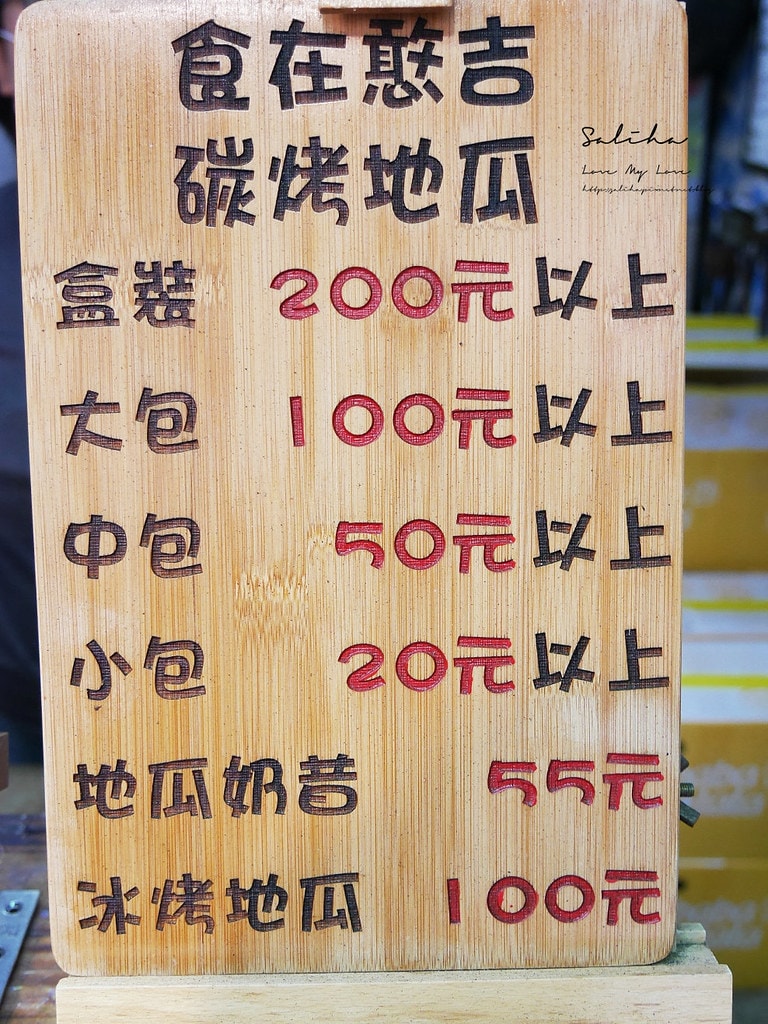 食在憨吉
碳烤地瓜
Saliha
Love My Love
盒裝 200元以上
大包 100元以上
中包 50元以上
小包 20元以上
地瓜奶昔 55元
冰烤地瓜 100元